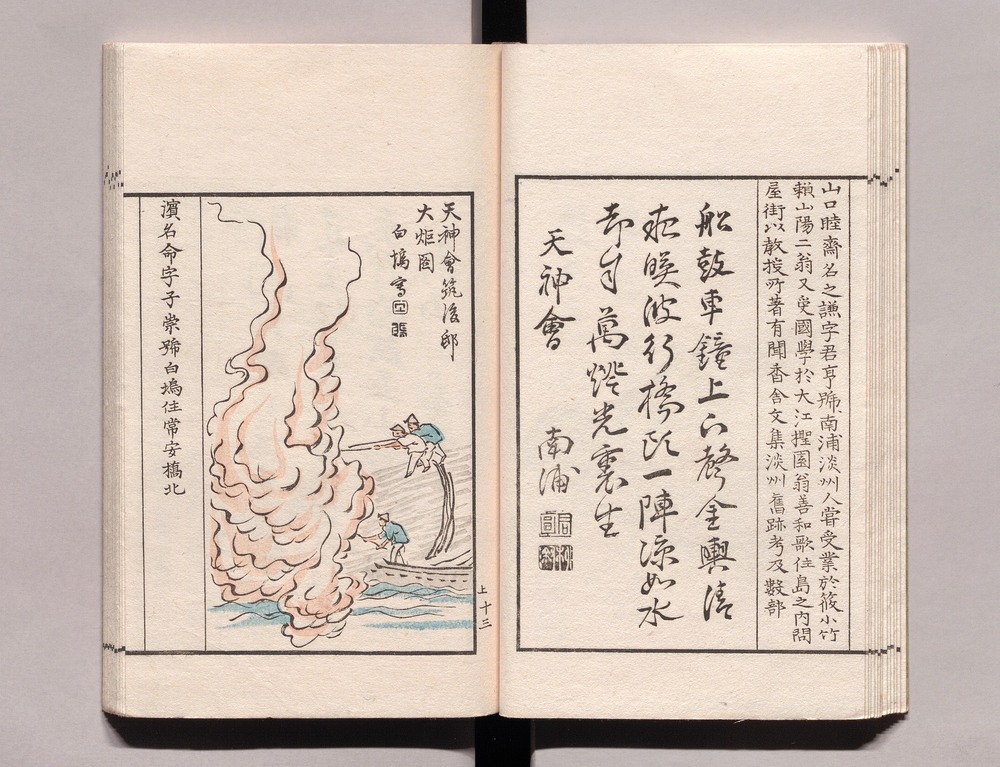 山口睦齋名之謙字君亨號南浦淡州人嘗受業於篠小竹
賴山陽二翁又受國學於大江園翁善和歌住島之内問
屋街以敎授所著有聞香舍文集淡州舊跡考及數部
船鼓車鐘上下聲金輿清
夜暎波行橋頭一陣涼如水
却自萬燈光裏生
天神會
南浦
上十三
天神會筑後邸
大炬圖
白塢寫
濱名命字子崇號白塢住常安橋北